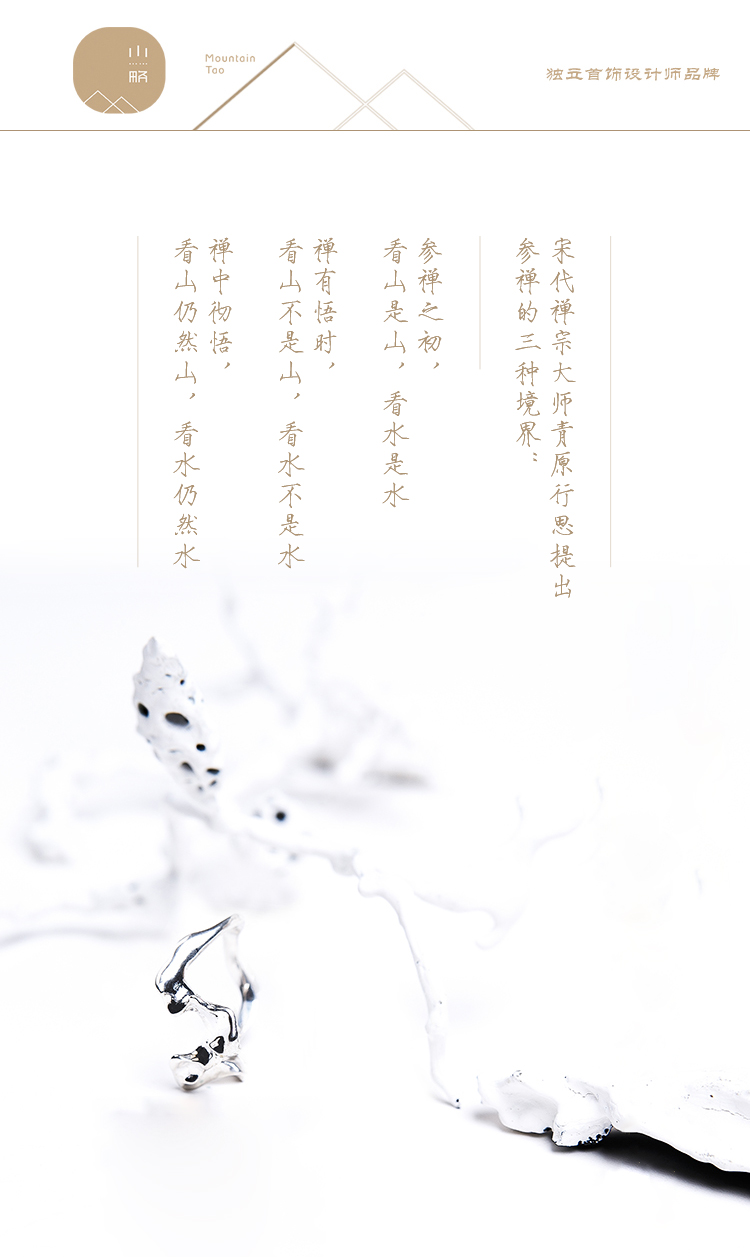 山
Mountain
Tao
独立首饰设计师品牌
宋代禅宗大师青原行思提出
参禅的三种境界：
参禅之初，
看山是山，看水是水
禅有悟时，
看山不是山，看水不是水
禅中彻悟，
看山仍然山，看水仍然水